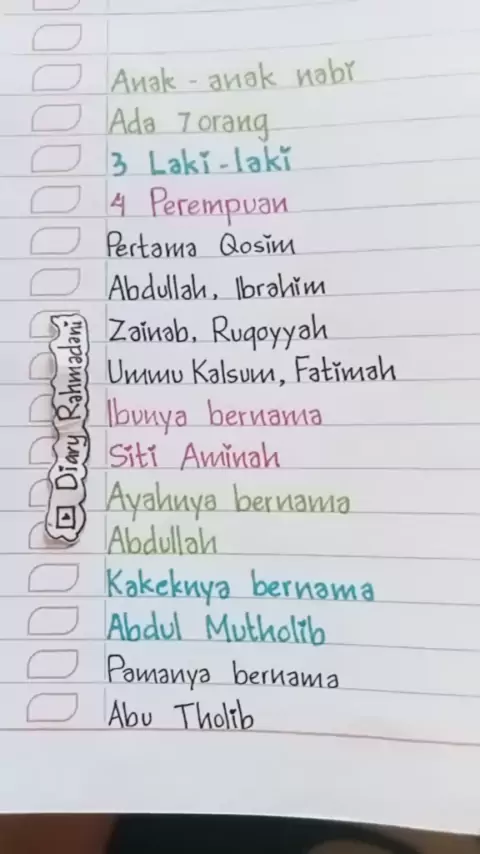 Anak - anak nabi
Ada 7 orang
3 Laki-laki
4 Perempuan
Pertama Qosim
Abdullah, Ibrahim
Zainab, Ruqoyyah
Ummu Kalsum, Fatimah
Ibunya bernama
Siti Aminah
Ayahnya bernama
Abdullah
Kakeknya bernama
Abdul Mutholib
Pamanya bernama
Abu Tholib
Diary Rahmadani